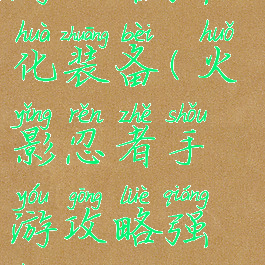 huà zhuāng bèi huǒ
化装备(火
yǐng rěn zhě shǒu
影忍者手
yóu gōng lüè qiáng
游攻略强